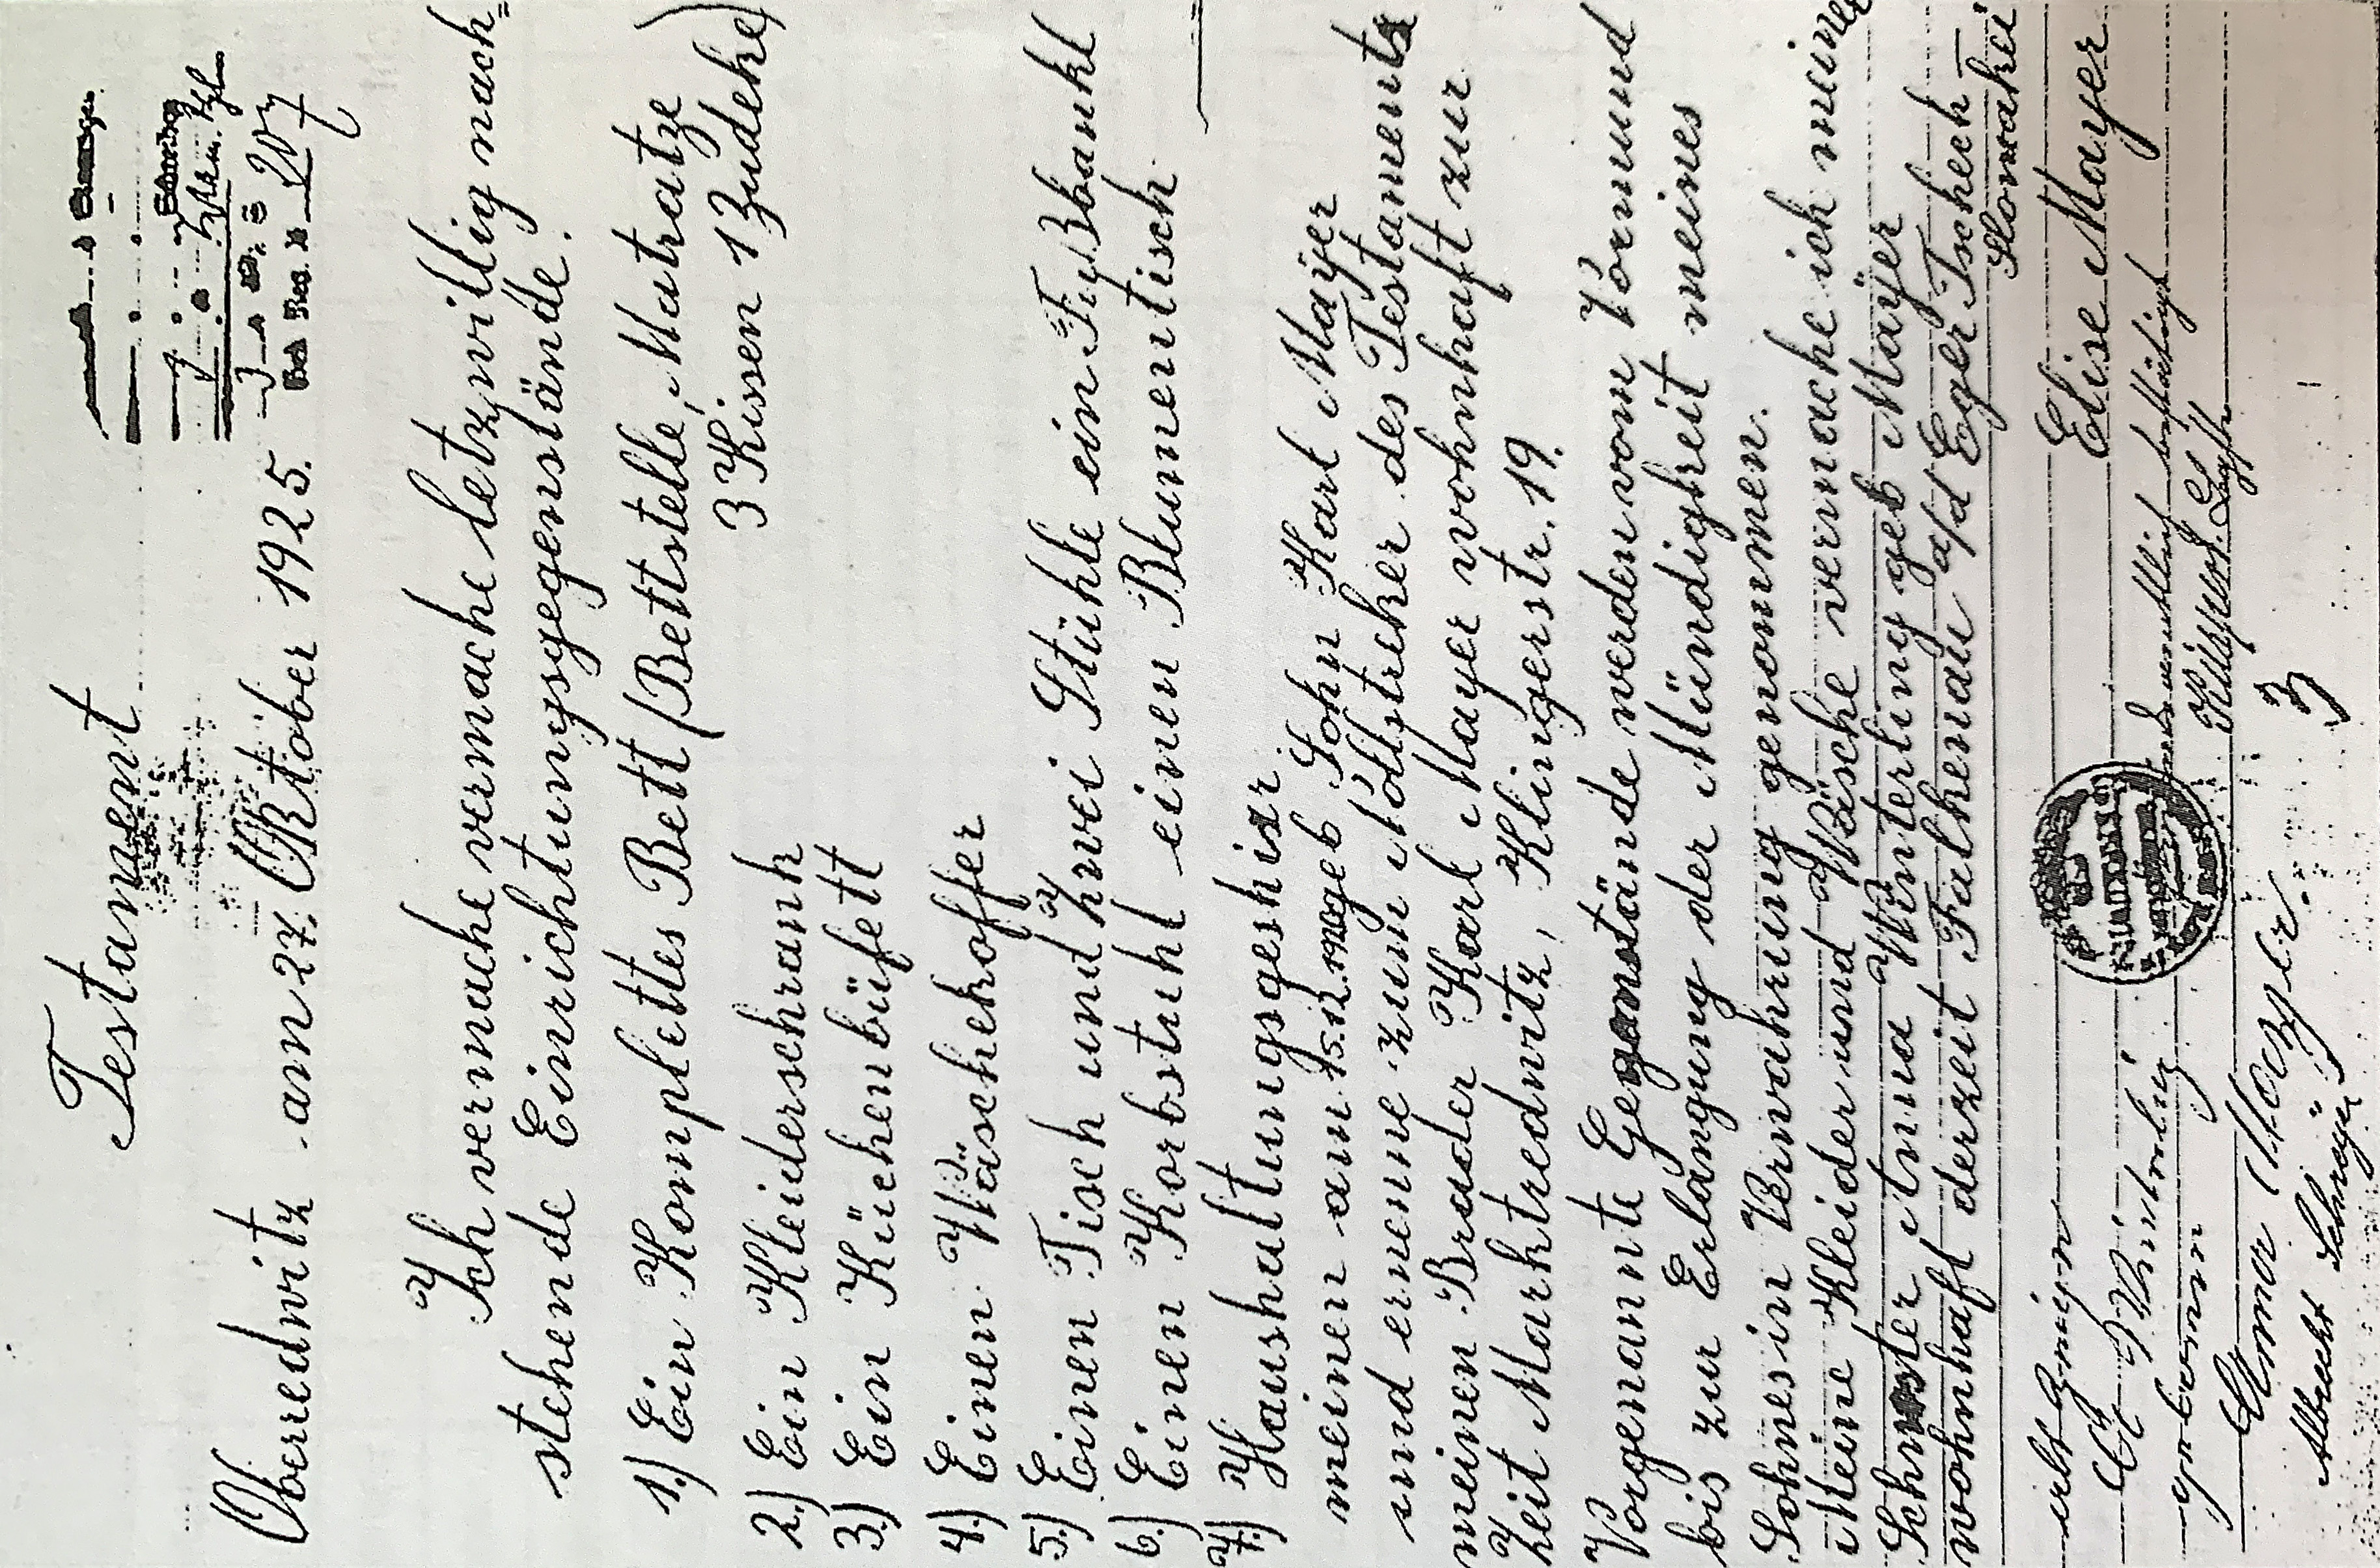 Testament
Oberredwitz am 27. Oktober 1925.
207
Ich vermache vermache letzwillig nach=
stehende Einrichtungsgegenstände.
1.) Ein Komplettes Bett (Bettstelle, Matratze
3 Kissen 1 Zudeke)
2.) Ein Kleiderschrank
3.) Ein Küchenbüfett
4.) Einen Wäschekoffer
5.) Einen Tisch und zwei Stühle ein Fußbankl
6.) Einen Korbstuhl einen Blumentisch
7.) Haushaltungsgeshirr
meinen am 15.12. geb Sohn Karl Mayer
und ernenne zum Vollstreker des Testaments
meinen Bruder Karl Mayer wohnhaft zur
Zeit Marktredwitz, Klingerstr. 19.
Vorgenannte Gegenstände werden vom Vormund
bis zur Erlangung der Mündigkeit meines
Sohnes in Verwahrung genommen.
Meine Kleider und Wäsche vermache ich meiner
Schwester Anna Winterling geb Mayer
wohnhaft derzeit Falkenau a/d Eger Tschech
Slowakei
Elise Mayer
als Zeugen
Winterling
geborene
Anna Mayer.
3